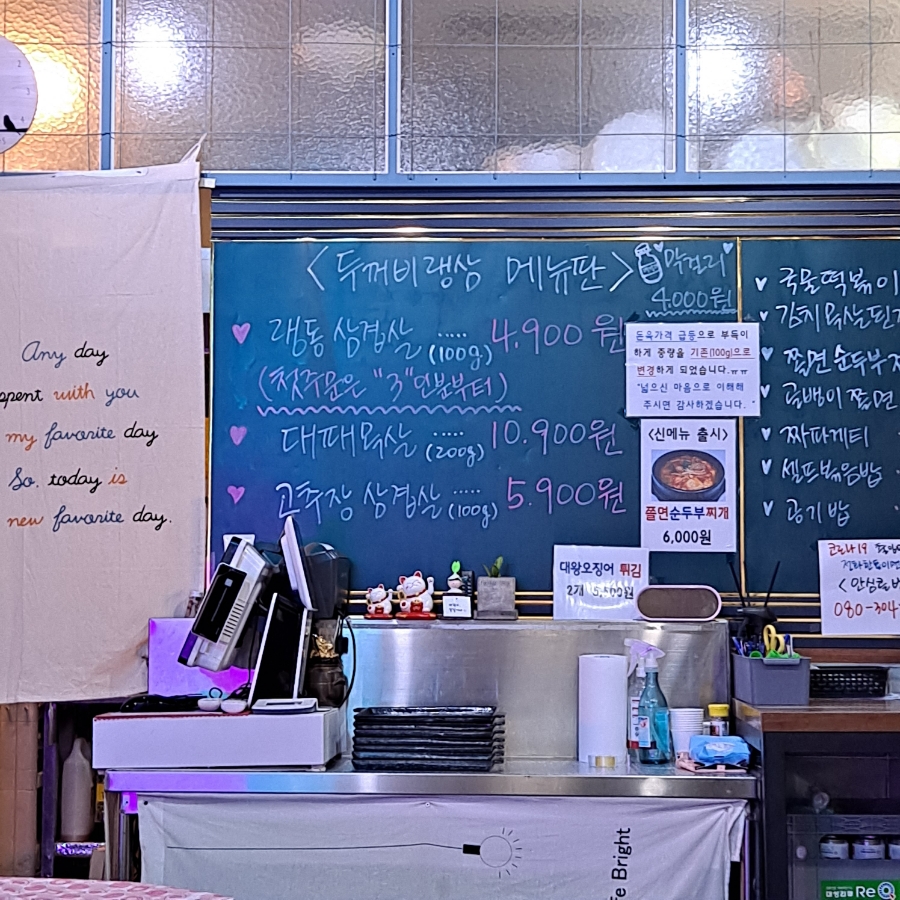 Any day
spent with you
my favorite day
So. today is
new favorite day.
<두꺼비랭상 메뉴판>
막걸리
4.000원
랭동 삼겹살 ..... (100g.) 4.900 원
(첫주문은 "3"인분부터)
대패목살 ..... (200g) 10.900원
고추장 삼겹살 ..... (100g) 5.900원
돈육가격 급등으로 부득이
하게 중량을 기존(100g)으로
변경하게 되었습니다.ㅠㅠ
"넓으신 마음으로 이해해
주시면 감사하겠습니다."
<신메뉴 출시>
쫄면순두부찌개
6,000원
대왕오징어 튀김
2개 5,500원
국물떡볶이
김치목살
쫄면순두부
골뱅이쫄면
짜파게티
셀프볶음밥
공기밥
코로나19
<안심콜
080-304
fe Bright
ReQ